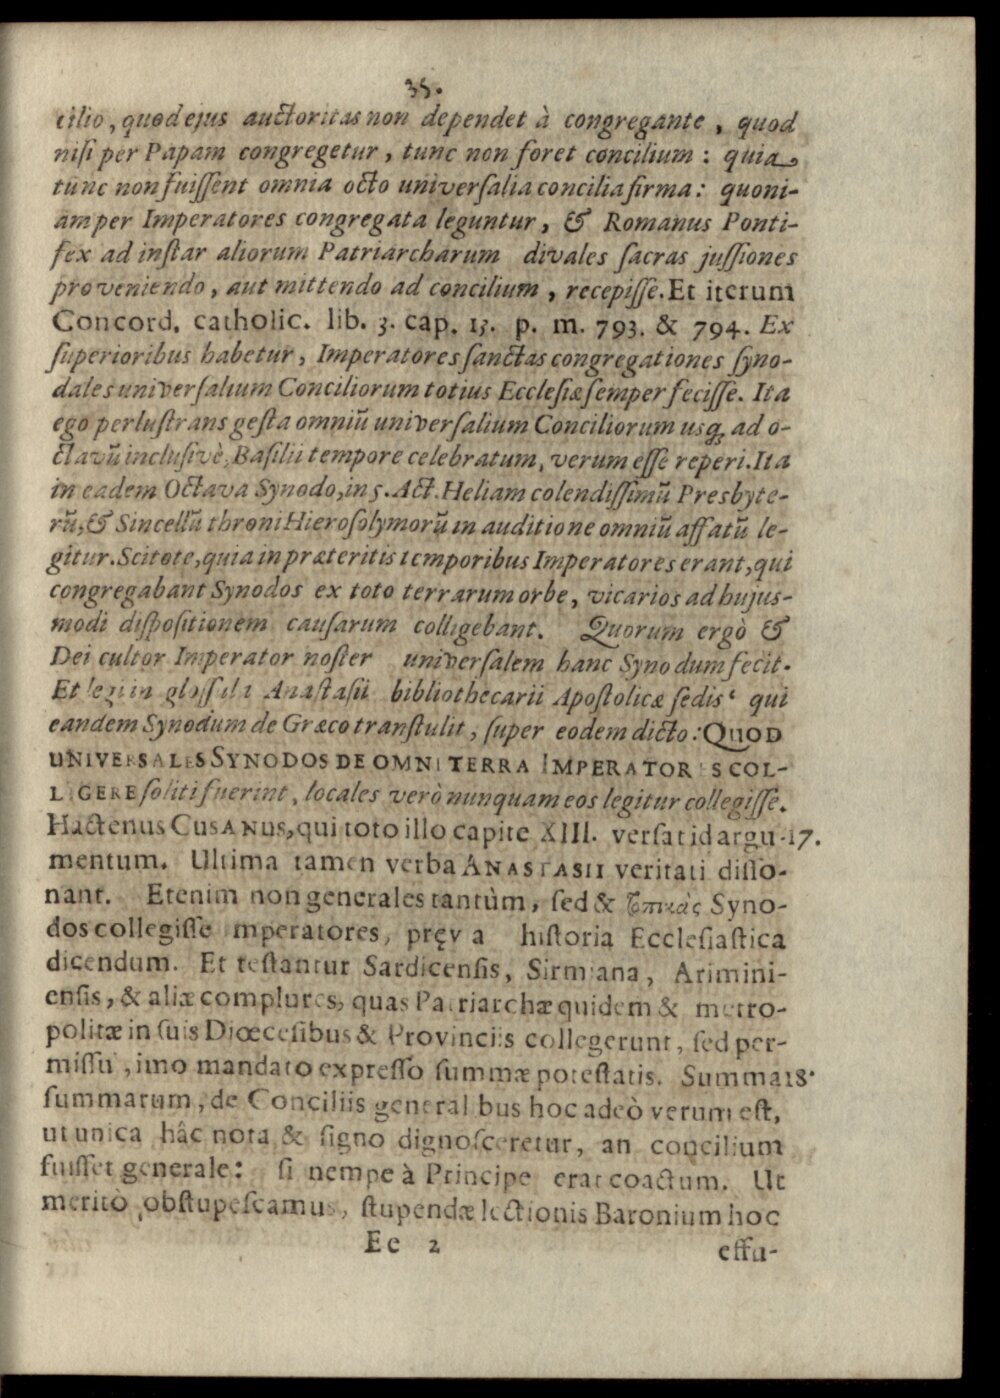 35.
cilio, quod ejus auctoritas non dependet à congregante, quod
nisi per Papam congregetur, tunc non foret concilium: quia
tunc non fuissent omnia octo universalia concilia firma: quoni-
am per Imperatores congregata leguntur, & Romanus Ponti-
fex ad instar aliorum Patriarcharum divales sacras jussiones
pro veniendo, aut mittendo ad concilium, recepisse. Et iterum
Concord. catholic. lib. 3. cap. 13. p. m. 793. & 794. Ex
superioribus habetur, Imperatores sanctas congregationes syno-
dales universalium Conciliorum totius Ecclesiæ semper fecisse. Ita
ego perlustrans gesta omniū universalium Conciliorum usq; ad o-
ctavū inclusivè, Basilii tempore celebratum, verum esse reperi. Ita
in eadem Octava Synodo, in 5. Act. Heliam colendissimū Presbyte-
rū, & Sincellū throni Hierosolymorū in auditione omniū affatū le-
gitur. Scitote, quia in præteritis temporibus Imperatores erant, qui
congregabant Synodos ex toto terrarum orbe, vicarios ad hujus-
modi dispositionem causarum colligebant. Quorum ergò &
Dei cultor Imperator noster universalem hanc Synodum fecit.
Et legi in glossula Anastasii bibliothecarii Apostolicæ sedis qui
eandem Synodum de Græco transtulit, super eodem dicto: QUOD
UNIVERSALES SYNODOS DE OMNI TERRA IMPERATORES COL-
LIGERE soliti fuerint, locales verò nunquam eos legitur collegisse.
Hactenus CUSANUS, qui toto illo capite XIII. versat id argu- 17.
mentum. Ultima tamen verba ANASTASII veritati disso-
nant. Etenim non generales tantùm, sed & τοπικὰς Syno-
dos collegisse mperatores, pręv a historia Ecclesiastica
dicendum. Et testantur Sardicensis, Sirmiana, Arimini-
ensis, & aliæ complures, quas Patriarchæ quidem & metro-
politæ in suis Diœcesibus & Provinciis collegerunt, sed per-
missu, imo mandato expresso summæ potestatis. Summa 18.
summarum, de Conciliis general bus hoc adeò verum est,
ut unica hâc nota & signo dignosceretur, an concilium
fuisset generale: si nempe à Principe erat coactum. Ut
meritò obstupescamus, stupendæ lectionis Baronium hoc
Ee 2
effu-